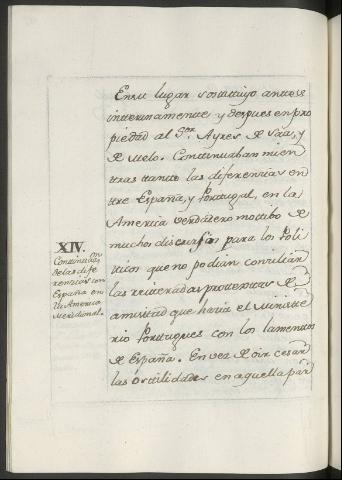 En su lugar sostituyo antes
interinamente, y despues en pro
piedad al Sor. Ayres de Saa, y
de Melo. Continuaban mien
tras tanto las diferencias en
tre España, y Portugal, en la
America verdadero motibo de
muchos discursos para los Poli
ticos que no podian conciliar
las reiteradas protextas de
amistad que hacia el Ministe
rio Portugues con los lamentos
de España. En vez de oir cesar
las ostilidades en aquella par
XIV.
Continuaon
de las dife
rencias con
España en
la America
Meridional.